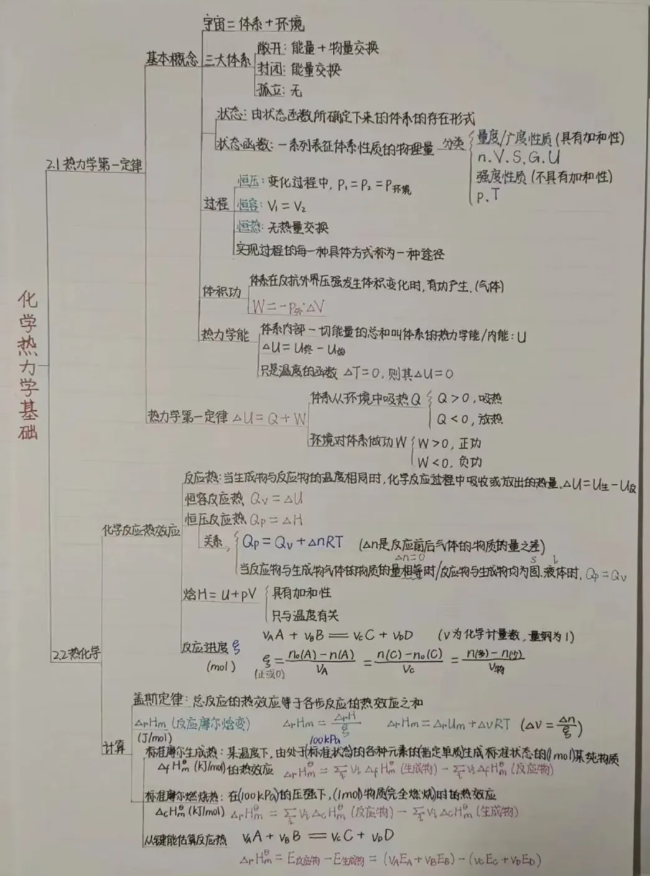 化学热力学基础
2.1 热力学第一定律
基本概念
宇宙=体系+环境
三大体系
敞开:能量+物量交换
封闭:能量交换
孤立:无
状态:由状态函数所确定下来的体系的存在形式
状态函数:一系列表征体系性质的物理量 分类
量度/广度性质(具有加和性)
n、V、S、G、U
强度性质(不具有加和性)
p、T
过程
恒压:变化过程中,P₁=P₂=P环境
恒容:V₁=V₂
恒热:无热量交换
实现过程的每一种具体方式称为一种途径
体积功
体系在反抗外界压强发生体积变化时,有功产生,(气体)
W=-P外·△V
热力学能
体系内部一切能量的总和叫体系的热力学能/内能:U
△U=U终-U始
只是温度的函数 △T=0,则其△U=0
热力学第一定律 △U=Q+W
体系从环境中吸热Q
Q>0,吸热
Q<0,放热
环境对体系做功W
W>0,正功
W<0,负功
2.2 热化学
化学反应热效应
反应热:当生成物与反应物的温度相同时,化学反应过程中吸收或放出的热量,△U=U生-U反
恒容反应热 Qv=△U
恒压反应热 Qp=△H
关系
Qp=Qv+△nRT (△n是反应前后气体的物质的量之差)
△n=0 s l
当反应物与生成物气体的物质的量相等时/反应物与生成物均为固、液体时,Qp=Qv
焓H=U+pV
具有加和性
只与温度有关
反应进度ξ
(mol)
νAA+νBB══νCC+νDD (ν为化学计量数,量纲为1)
ξ=n₀(A)-n(A)/νA=n(C)-n₀(C)/νC
(正或0)
计算
盖斯定律:总反应的热效应等于各步反应的热效应之和
△rHm(反应摩尔焓变) △rHm=△rH/ξ △rHm=△rUm+△νRT (△ν=△n/ξ)
(J/mol)
100kPa
标准摩尔生成热:某温度下,由处于(标准状态)的各种元素的指定单质生成标准状态的(1mol)某纯物质
△fHm^θ(kJ/mol)的热效应 △rHm^θ=Σνi△fHm^θ(生成物)-Σνi△fHm^θ(反应物)
标准摩尔燃烧热:在(100kPa)的压强下,(1mol)物质完全燃烧时的热效应
△cHm^θ(kJ/mol) △rHm^θ=Σνi△cHm^θ(反应物)-Σνi△cHm^θ(生成物)
从键能估算反应热 νAA+νBB══νCC+νDD
△rHm^θ=E反应物-E生成物=(νAEA+νBEB)-(νCEC+νDED)